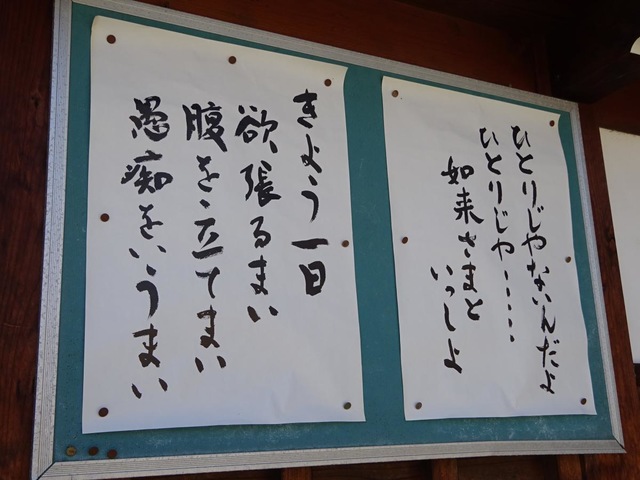 ひとりじゃないんだよ
ひとりじゃ・・・・・
如来さまと
いっしよ
きょう一日
欲張るまい
腹を立てまい
愚痴をいうまい